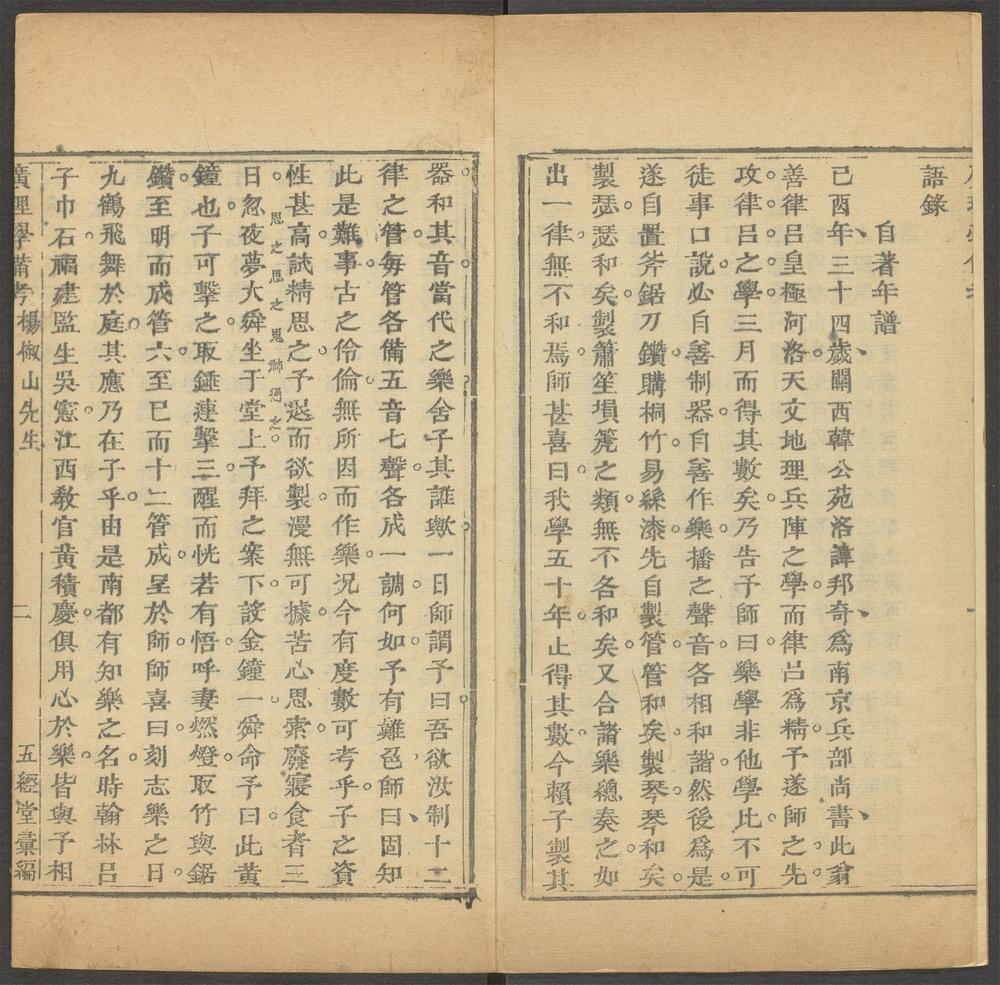 語錄
自著年譜
己酉年三十四歲關西韓公苑洛諱邦奇爲南京兵部尚書此翁
善律呂皇極河洛天文地理兵陣之學而律呂爲精予遂師之先
攻律呂之學三月而得其數矣乃告予師曰樂學非他學比不可
徒事口說必自善制器自善作樂播之聲音各相和諧然後爲是
遂自置斧鋸刀鑽購桐竹易絲漆先自製管管和矣製琴琴和矣
製瑟瑟和矣製簫笙塤箎之類無不各和矣又合諸樂總奏之如
出一律無不和焉師甚喜曰我學五十年止得其數今賴子製其
器和其音當代之樂舍子其誰歟一日師謂予曰吾欲汝制十二
律之管每管各備五音七聲各成一調何如予有難色師曰固知
此是難事古之伶倫無所因而作樂况今有度數可考乎子之資
性甚高試精思之予退而欲製漫無可據苦心思索廢寢食者三
思之思之鬼神通之
日忽夜夢大舜坐于堂上予拜之案下設金鐘一舜命予曰此黃
鐘也子可擊之取錘連擊三醒而恍若有悟呼妻燃燈取竹與鋸
鑽至明而成管六至巳而十二管成呈於師師喜曰刻志樂之日
九鶴飛舞於庭其應乃在子乎由是南都有知樂之名時翰林呂
子巾石福建監生吳憲江西敎官黃積慶俱用心於樂皆與予相
廣理學備考 楊椒山先生 二 五經堂彙編